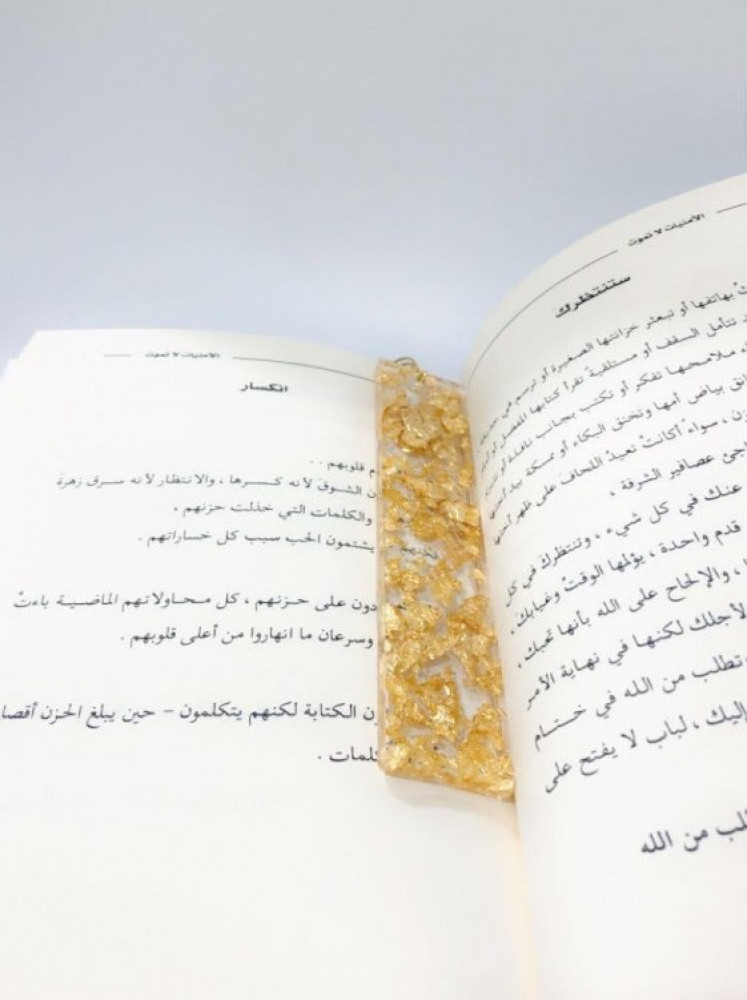 الأمنيات لا تموت
ستنتظرك
بهاتفها أو تبعثر خزانتها الصغيرة أو ترسم في
تتأمل السقف أو مستلقية تقرأ كتابها المفضل أو
ملامحها تفكر أو تكتب بجانب نافذة أو
بياض أمها وتخنق البكاء أو ممسكة بيد
، سواءً أكانتْ تعيدُ اللحاف على ظهر
عصافير الشرفة ،
عنك في كل شيء ، وتنتظرك في كل
قدم واحدة ، يؤلمها الوقتُ وغيابك ،
، والإلحاح على الله بأنها تحبك ،
لأجلك لكنها في نهاية الأمر
وتطلب من الله في ختام
إليك ، لباب لا يفتح على
من الله
الأمنيات لا تموت
انكسار
قلوبهم . .
الشوقَ لأنه كسرها ، والانتظار لأنه سرق زهرة
والكلمات التي خذلت حزنهم ،
يشتمون الحب سبب كل خساراتهم .
على حزنهم ، كل محاولاتهم الماضية باءتْ
وسرعان ما انهاروا من أعلى قلوبهم .
الكتابة لكنهم يتكلمون - حين يبلغ الحزن